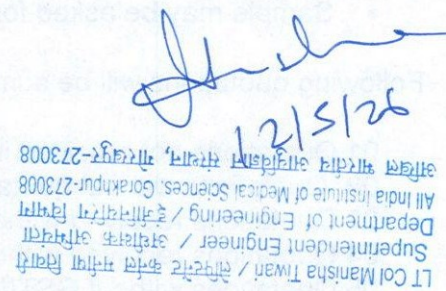 Sample may be asked for
Following
12/5/26
LT Col Manisha Tiwari / लेफ्टिनेंट कर्नल मनीषा तिवारी
Superintendent Engineer / अधीक्षक अभियंता
Department of Engineering / इंजीनियरिंग विभाग
All India Institute of Medical Sciences, Gorakhpur-273008
अखिल भारतीय आयुर्विज्ञान संस्थान, गोरखपुर-273008